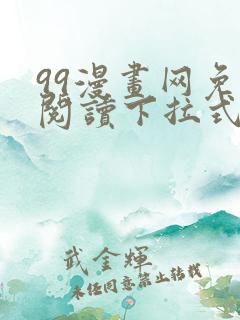 99漫畫网免
閱讀下拉式
武金輝
未经同意禁止转载